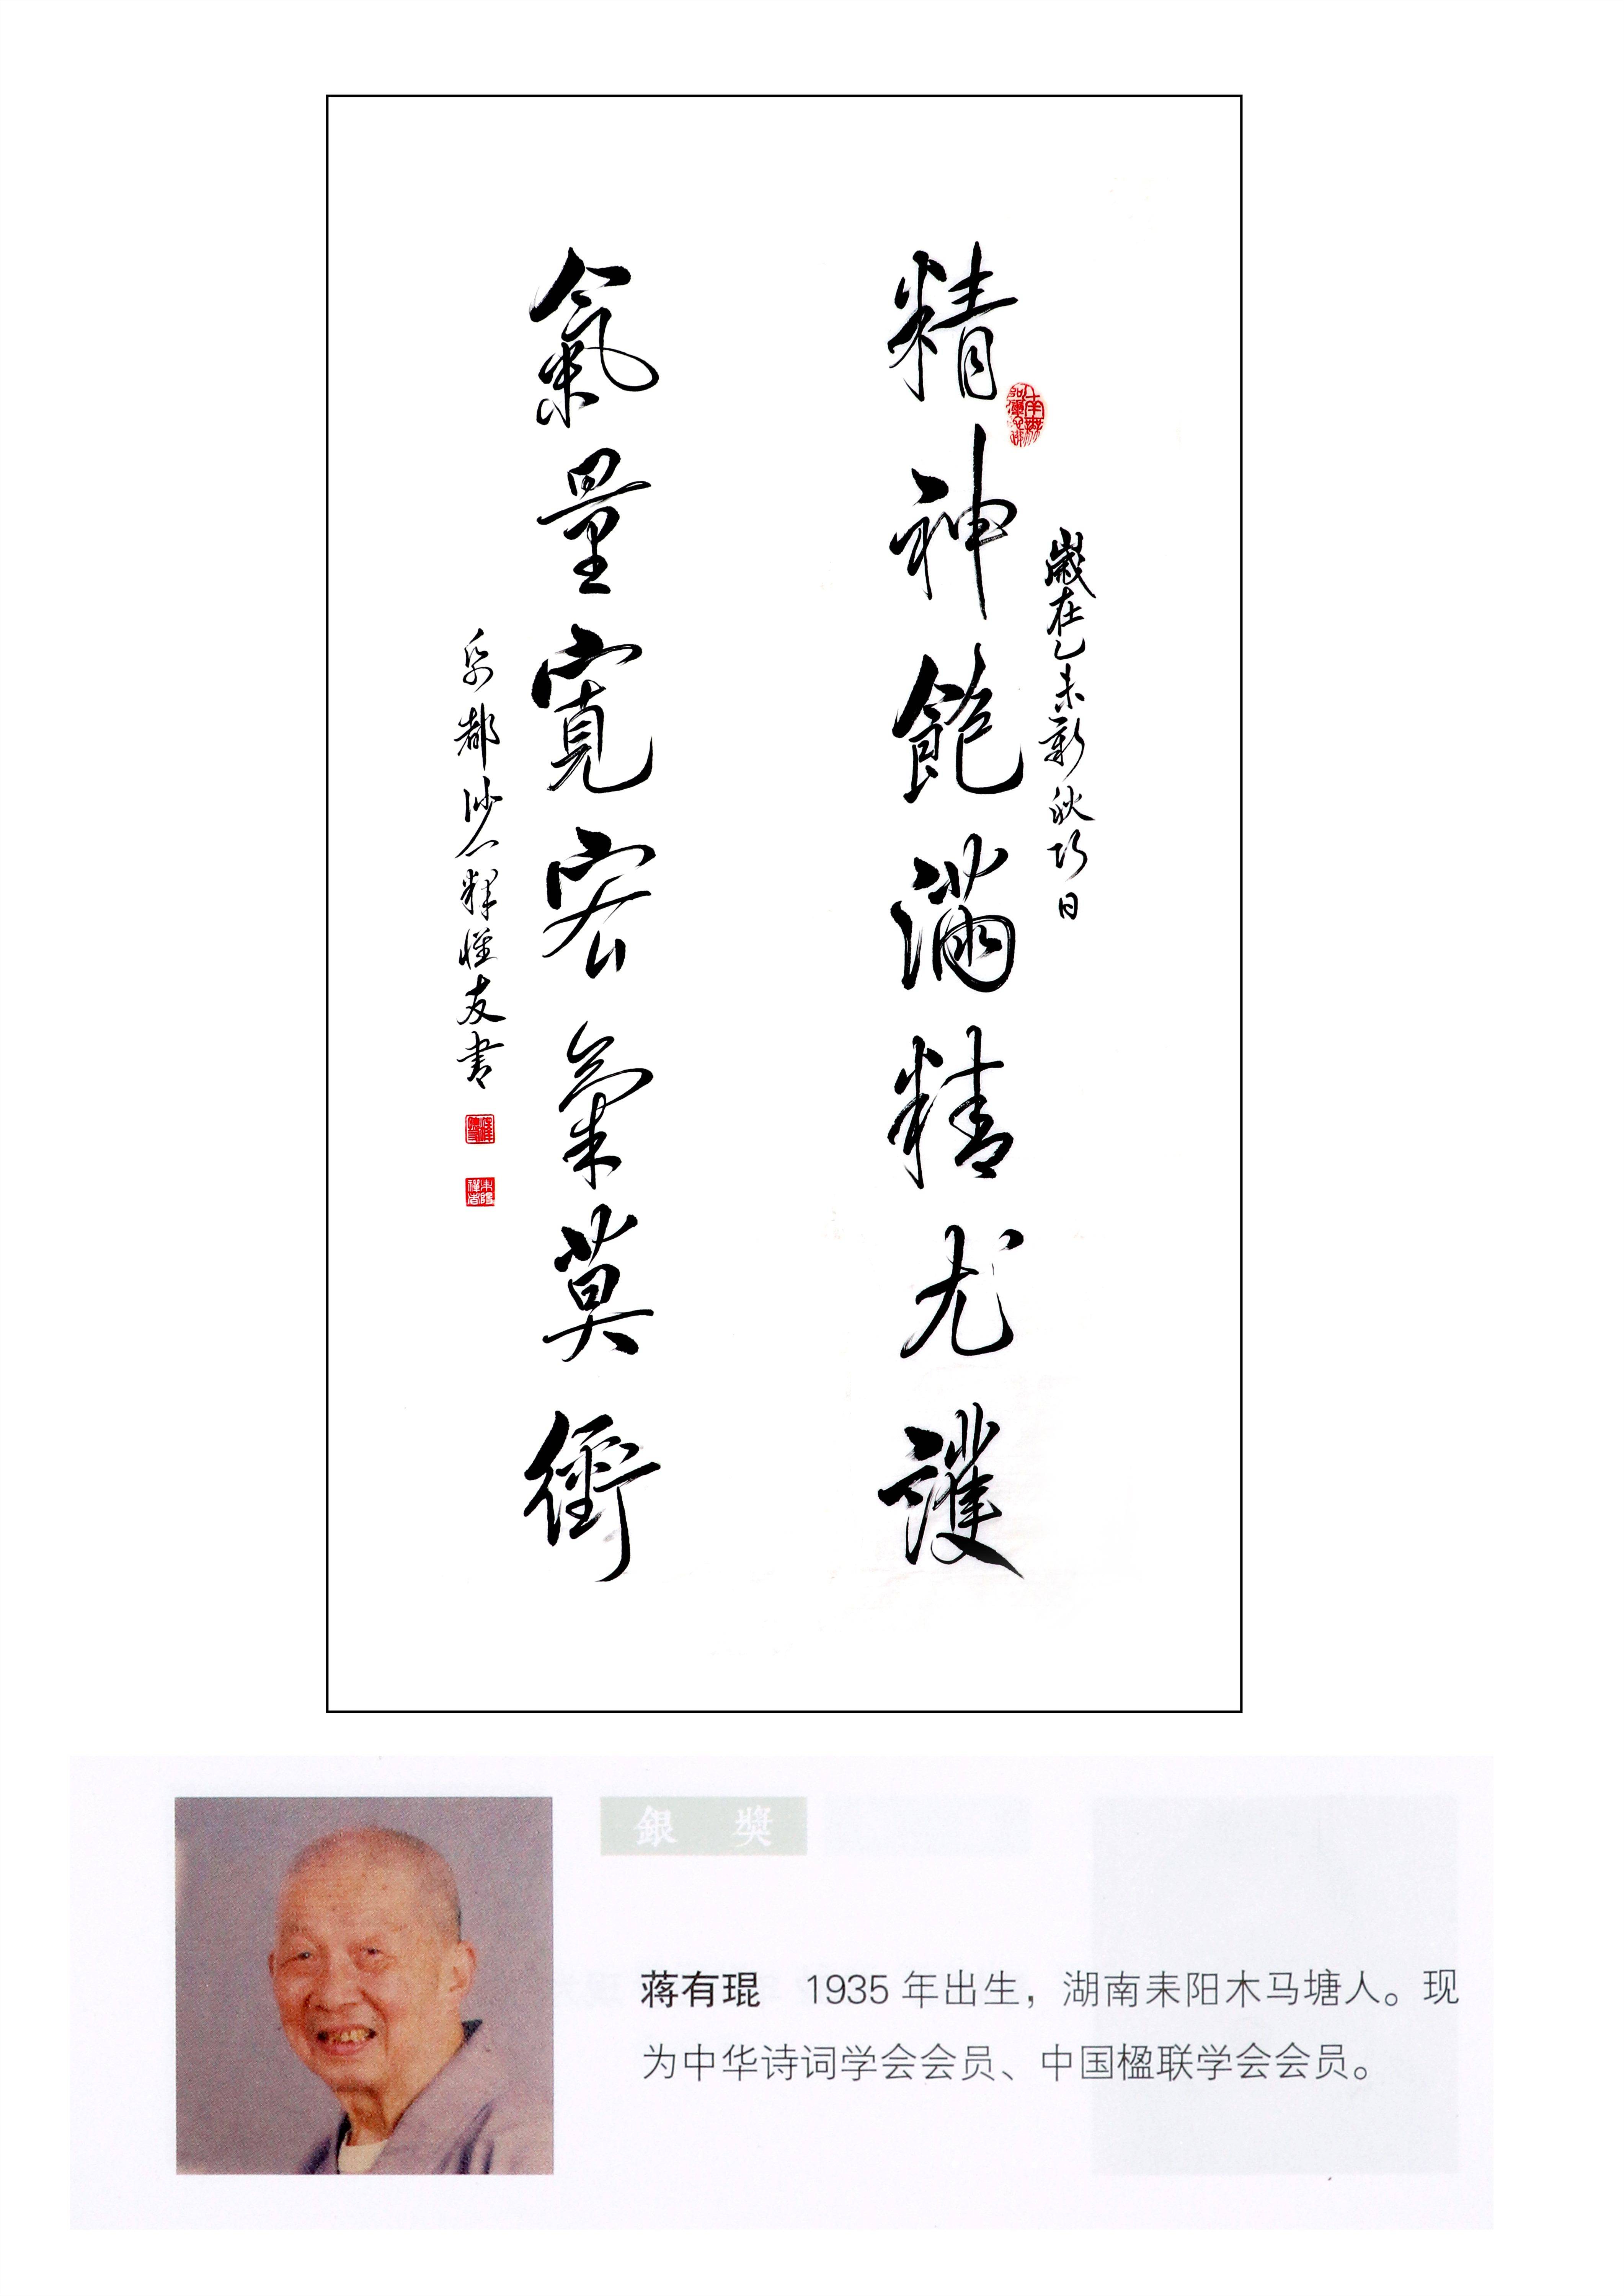 精神飽滿精尤護
歲在乙未新秋巧日
氣量寬宏氣莫衝
京都沙门釋惟友書
銀 獎
蒋有琨 1935 年出生，湖南耒阳木马塘人。现
为中华诗词学会会员、中国楹联学会会员。